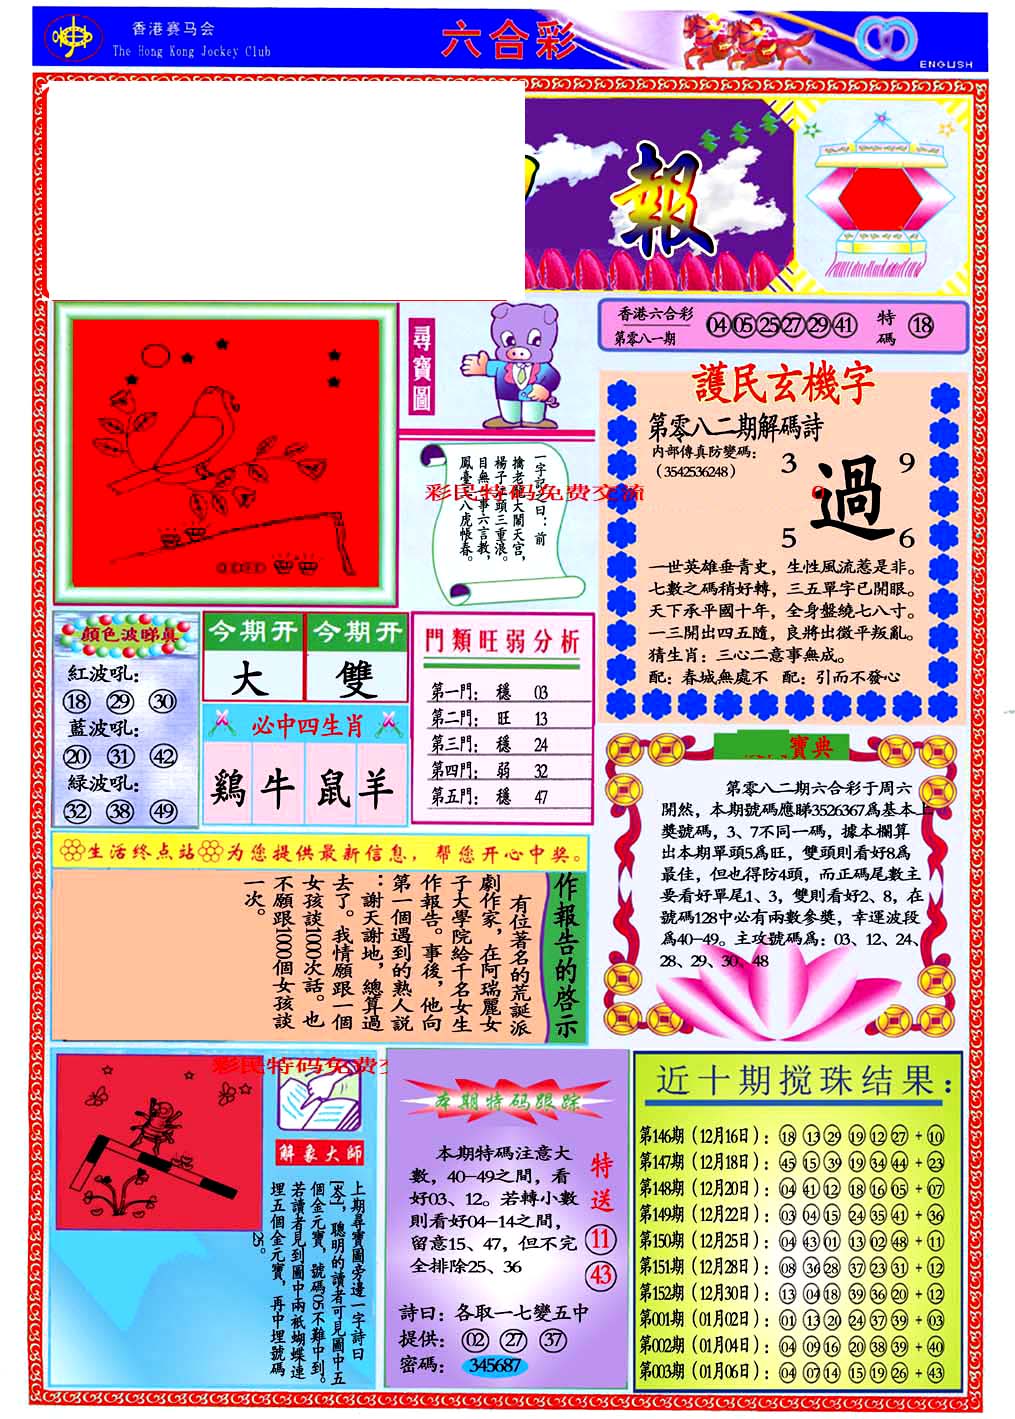 香港赛马会
The Hong Kong Jockey Club
六合彩
ENGLISH
報
香港六合彩
第零八一期
04 05 25 27 29 41
特碼
18
尋寶圖
一字記之曰：前
擒老龍大鬧天宮，
楊子江頭三重浪。
目無一事六言教，
鳳臺二八虎帳春。
彩民特码免费交流
護民玄機字
第零八二期解碼詩
内部傳真防變碼：
（3542536248）
3 9
過
5 6
一世英雄垂青史，生性風流惹是非。
七數之碼稍好轉，三五單字已開眼。
天下承平國十年，全身盤繞七八寸。
一三開出四五隨，良將出徵平叛亂。
猜生肖：三心二意事無成。
配：春城無處不 配：引而不發心
顔色波睇真
紅波吼：
18 29 30
藍波吼：
20 31 42
緑波吼：
32 38 49
今期开 今期开
大 雙
必中四生肖
鷄 牛 鼠 羊
門類旺弱分析
第一門： 穩 03
第二門： 旺 13
第三門： 穩 24
第四門： 弱 32
第五門： 穩 47
寶典
第零八二期六合彩于周六
開然，本期號碼應睇3526367爲基本上
獎號碼，3、7不同一碼，據本欄算
出本期單頭5爲旺，雙頭則看好8爲
最佳，但也得防4頭，而正碼尾數主
要看好單尾1、3，雙則看好2、8，在
號碼128中必有兩數參獎，幸運波段
爲40-49。主攻號碼爲：03、12、24、
28、29、30、48
生活终点站 为您提供最新信息，帮您开心中奖。
作報告的啓示
有位著名的荒誕派
劇作家，在阿瑞麗女
子大學院給千名女生
作報告。事後，他向
第一個遇到的熟人説
：謝天謝地，總算過
去了。我情願跟一個
女孩談1000次話。也
不願跟1000個女孩談
一次。
彩民特码免费交
解象大師
上期尋寶圖旁邊一字詩曰
[岑]，聰明的讀者可見圖中五
個金元寶，號碼05不難中到。
若讀者見到圖中兩祇蝴蝶連
埋五個金元寶，再中埋號碼
25。
本期特码跟踪
本期特碼注意大
數，40-49之間，看
好03、12。若轉小數
則看好04-14之間，
留意15、47，但不完
全排除25、36
特送
11
43
詩曰：各取一七變五中
提供： 02 27 37
密碼： 345687
近十期搅珠结果：
第146期（12月16日）：18 13 29 19 12 27 + 10
第147期（12月18日）：45 15 39 19 34 44 + 23
第148期（12月20日）：04 41 12 18 16 05 + 07
第149期（12月22日）：03 04 15 24 35 41 + 36
第150期（12月25日）：04 43 01 13 02 48 + 11
第151期（12月28日）：08 36 28 37 23 31 + 12
第152期（12月30日）：13 04 18 39 36 20 + 12
第001期（01月02日）：01 13 20 24 37 39 + 03
第002期（01月04日）：04 09 16 20 38 39 + 40
第003期（01月06日）：04 07 14 15 19 26 + 43